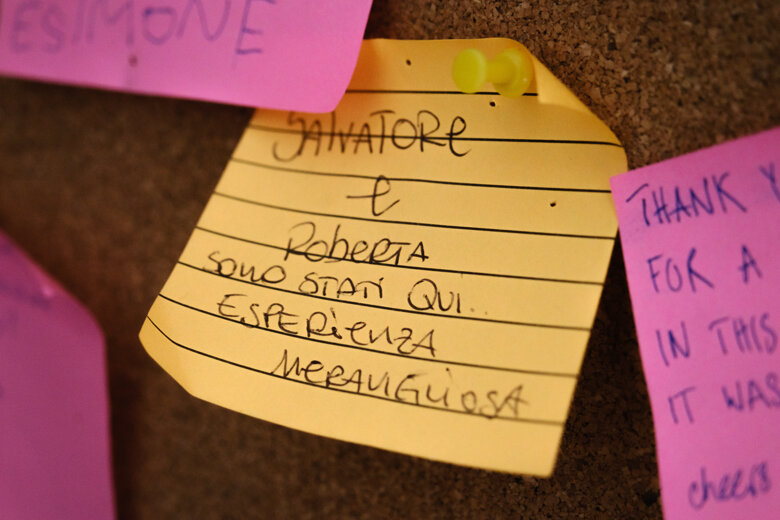 ESIMONE
SALVATORE
e
ROBERTA
SONO STATI QUI..
ESPERIENZA
MERAVIGLIOSA
THANK Y
FOR A
IN THIS
IT WAS
cheers